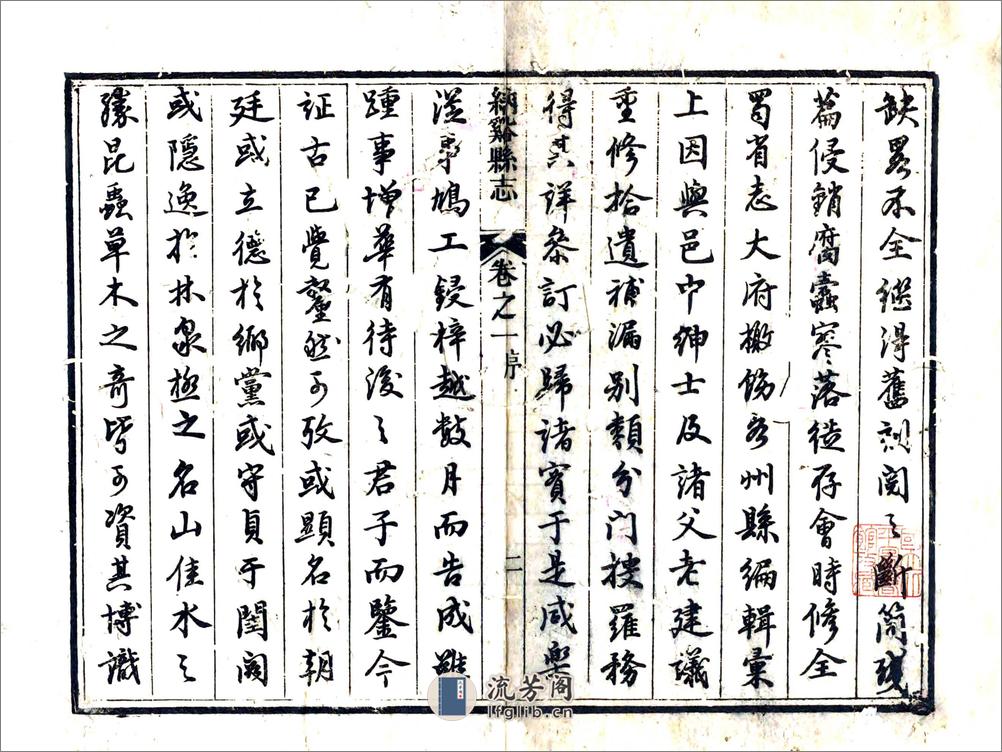 缺畧不全继得舊刻阅之斷简残
篇侵銷腐蠹寥落徒存會時修全
蜀省志大府檄飭各州縣編輯彙
上因與邑中紳士及諸父老建議
重修拾遺補漏别類分门搜羅務
得其详叅訂必歸諸實于是咸樂
從事鳩工鋟梓越數月而告成雖
踵事增華有待後之君子而鑒今
証古已覺釐然可攷或顯名於朝
廷或立德於鄉黨或守貞于閨阁
或隱逸於林泉極之名山佳水之
緣昆蟲草木之奇皆可資其博識
納谿縣志
卷之一 序
二
流芳阁
lfglib.cn